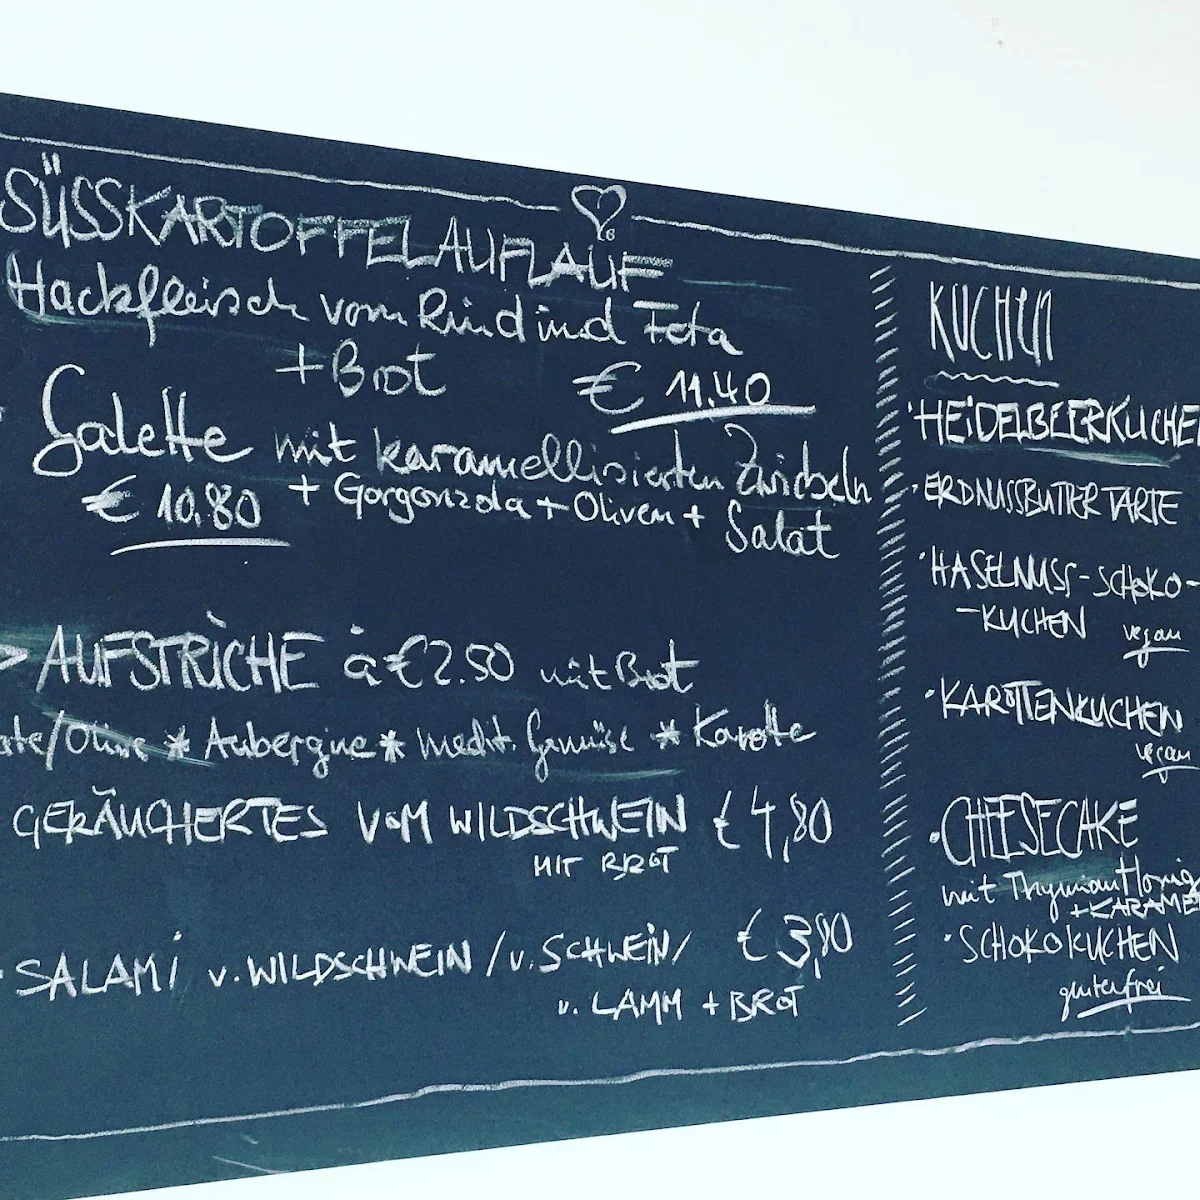 SÜSSKARTOFFELAUFLAUF
Hackfleisch vom Rind und Feta
+ Brot € 11.40
Galette mit karamellisierten Zwiebeln
€ 10.80 + Gorgonzola + Oliven + Salat
> AUFSTRICHE à €2.50 mit Brot
ate/Olive * Aubergine * medit. Gemüse * Karotte
GERÄUCHERTES VOM WILDSCHWEIN € 4,80
MIT BROT
SALAMI v. WILDSCHWEIN / v. SCHWEIN /
v. LAMM + BROT
KUCHEN
·HEIDELBEERKUCHE
·ERDNUSSBUTTER TARTE
·HASELNUSS-SCHOKO-
-KUCHEN vegan
·KAROTTENKUCHEN
vegan
·CHEESECAKE
mit Thymian Honig
+KARAME
·SCHOKOKUCHEN
glutenfrei